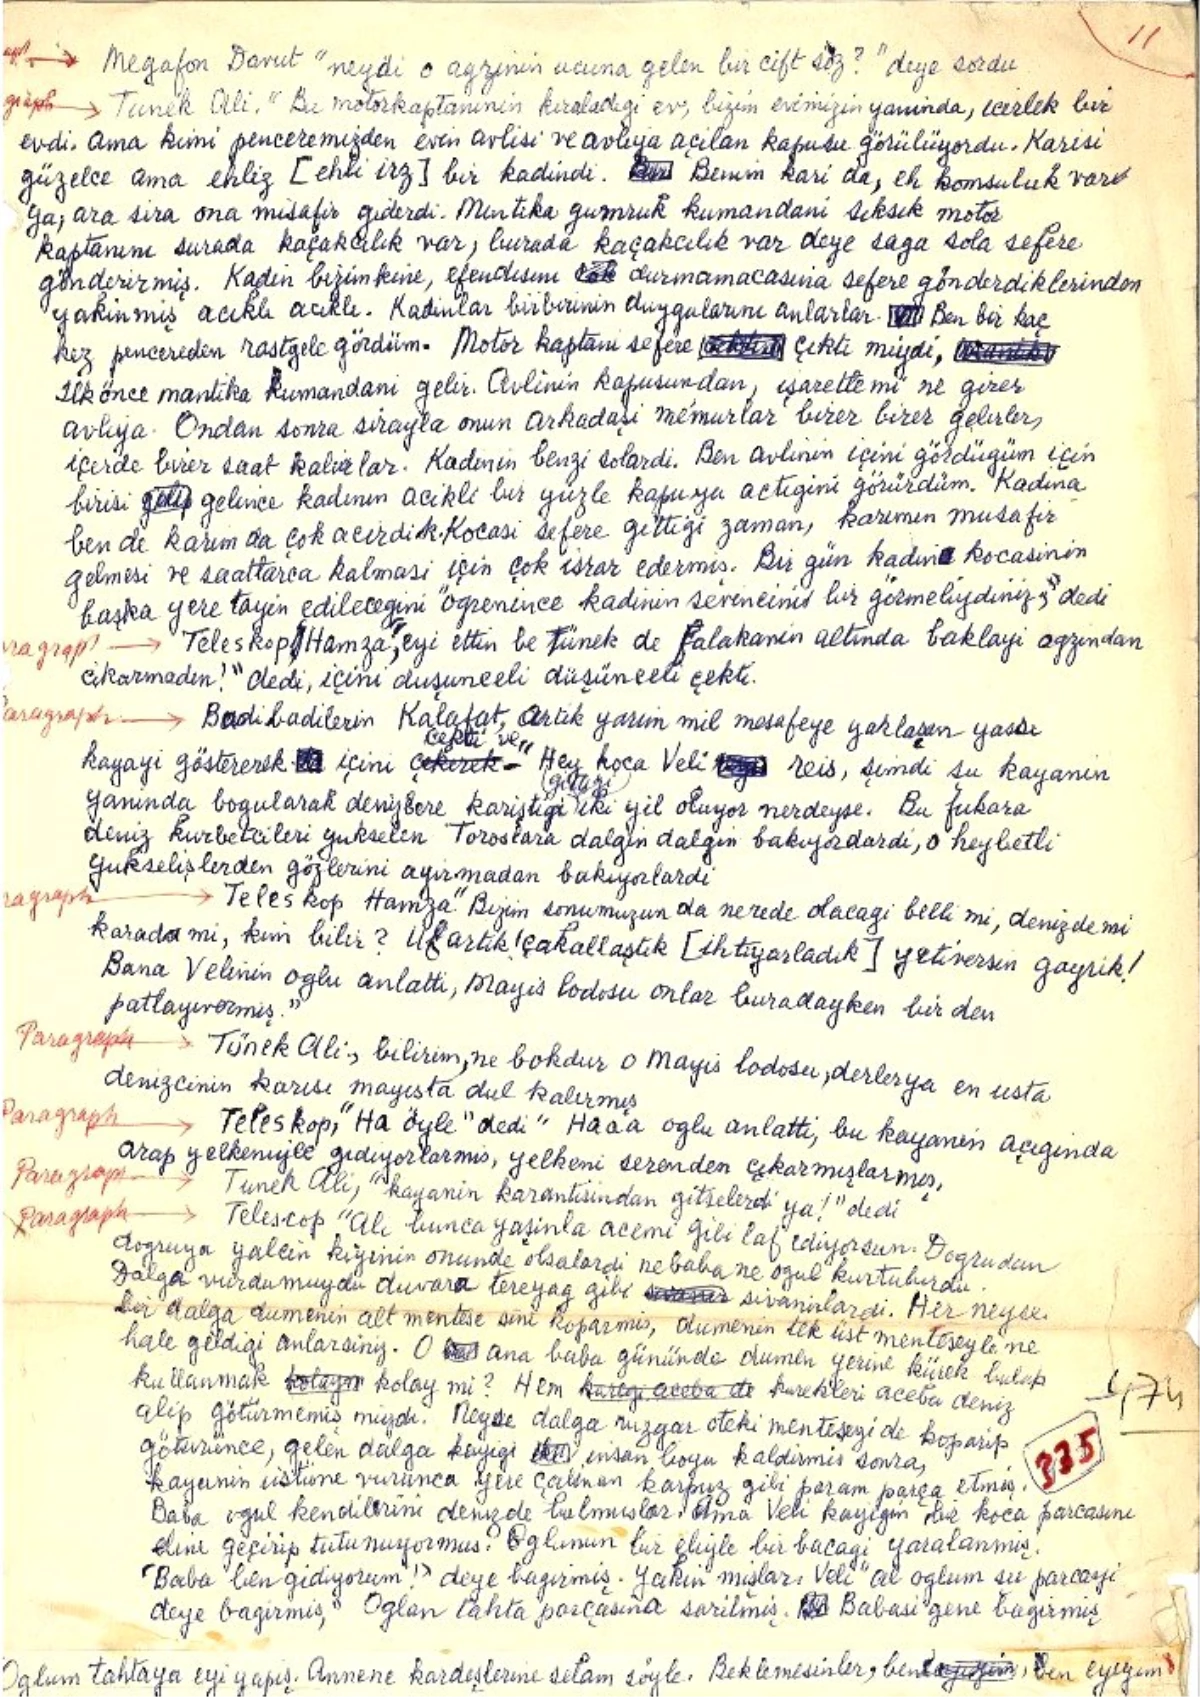 11
→ Megafon Davut "neydi o agzinin ucuna gelen bir cift söz?" deye sordu
graph → Tünek Ali. "Bu motorkaptaninin kiraladigi ev, bizim evimizin yaninda, icerlek bir
evdi. Ama kimi penceremizden evin avlisi ve avluya açilan kapusu görülüyordu. Karisi
güzelce ama ehliz [ehli irz] bir kadindi. Benim kari da, eh komsuluk var
ya, ara sira ona misafir giderdi. Mintika gumruk kumandani siksik motor
kaptanini surada kaçakcilik var, burada kaçakcilik var deye saga sola sefere
gönderirmiş. Kadin bizimkine, efendisini durmamacasina sefere gönderdiklerinden
yakinmiş acikli acikli. Kadinlar birbirinin duygularini anlarlar. Ben bir kaç
kez pencereden rastgele gördüm. Motor kaptani sefere çekti miydi,
Ilkönce mantika kumandani gelir. Avlinin kapusundan, işarettemi ne girer
avliya. Ondan sonra sirayla onun arkadaşi memurlar birer birer gelirler,
içerde birer saat kalirlar. Kadinin benzi solardi. Ben avlinin içini gördügüm için
birisi gelince kadinin acikli bir yüzle kapuya actigini görürdüm. Kadina
ben de karim da çok acirdik. Kocasi sefere gittiği zaman, karimin musafir
gelmesi ve saatlarca kalmasi için çok israr edermiş. Bir gün kadin kocasinin
başka yere tayin edilecegini ögrenince kadinin sevincini bir görmeliydiniz" dedi
ragraph → Teleskop Hamza, "eyi ettin be Tünek de falakanin altinda baklayi agzindan
cikarmaden!" dedi, içini düşünceli düşünceli çekti.
aragraph → Badibadilerin Kalafat, artik yarim mil mesafeye yaklaşan yassi
kayayi göstererek içini çekti ve "Hey koca Veli reis, şimdi su kayanin
yaninda bogularak denizlere kariştigi iki yil oluyor nerdeyse. Bu fukara
deniz kurbetcileri yukselen Toroslara dalgin dalgin bakiyordardi, o heybetli
yukselişlerden gözlerini ayirmadan bakiyorlardi
ragraph → Teleskop Hamza "Bizim sonumuzun da nerede olacagi belli mi, denizde mi
karada mi, kim bilir? Uf artik! çakallaştik [ihtiyarladik] yetiversin gayrik!
Bana Velinin oglu anlatti, Mayis lodosu onlar buradayken bir den
patlayivermiş."
Paragraph → Tünek Ali, bilirim, ne bokdur o Mayis lodosu, derlerya en usta
denizcinin karisi mayista dul kalirmiş
Paragraph → Teleskop, "Ha öyle" dedi "Haaa oglu anlatti, bu kayanin açiginda
arap yelkeniyle gidiyorlarmis, yelkeni serenden çikarmişlarmiş,
Paragraph → Tunek Ali, "kayanin karantisindan gitselerdi ya!" dedi
Paragraph → Telescop "Ali bunca yaşinla acemi gibi laf ediyorsun. Dogrudan
dogruya yalcin kiyinin onunde olsalardi ne baba ne ogul kurtulurdu.
Dalga vurdumuydu duvara tereyag gibi sivanirlardi. Her neyse.
bir dalga dumenin alt mentese sini koparmis, dumenin tek üst menteseyle ne
hale geldigi anlarsiniz. O ana baba gününde dumen yerine kürek bulup
kullanmak kolay mi? Hem kurekleri aceba deniz
alip götürmemiş miydi. Neyse dalga ruzgar oteki menteşeyi de koparip
götürünce, gelen dalga kayigi insan boyu kaldirmis sonra,
kayanin üstüne vurunca yere çalinan karpuz gibi param parça etmiş.
Baba ogul kendilerini denizde bulmuslar. Ama Veli kayigin bir koca parcasini
eline geçirip tutunuyormus. Oglunun bir eliyle bir bacagi yaralanmiş.
"Baba ben gidiyorum!" deye bagirmiş. Yakin mişlar. Veli "al oglum su parcayi
deye bagirmiş," Oglan tahta parçasina sarilmiş. Babasi gene bagirmiş
Oglum tahtaya eyi yapiş. Annene kardeşlerine selam söyle. Beklemesinler, ben eyeyim
335